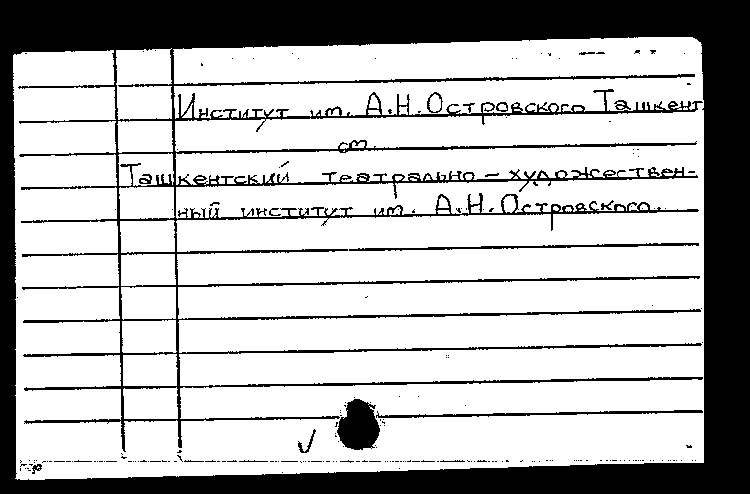 Институт им. А.Н.Островского Ташкент.
см.
Ташкентский театрально-художествен-
ный институт им. А.Н.Островского.